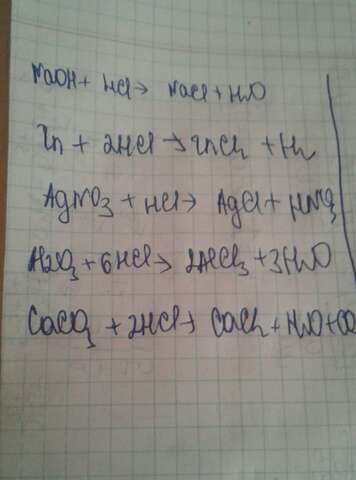 NaOH + HCl → NaCl + H₂O
Zn + 2HCl → ZnCl₂ + H₂
AgNO₃ + HCl → AgCl + HNO₃
Al₂O₃ + 6HCl → 2AlCl₃ + 3H₂O
CaCO₃ + 2HCl → CaCl₂ + H₂O + CO